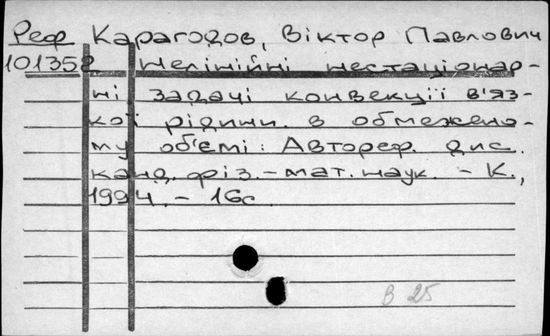 Реф Карагодов, Віктор Павлович
101358 Нелінійні нестаціонар-
ні задачі конвекції в'яз-
кої рідини в обмежено-
му об'ємі: Автореф. дис.
канд. фіз.-мат. наук. - К.,
1994. - 16с
В 25